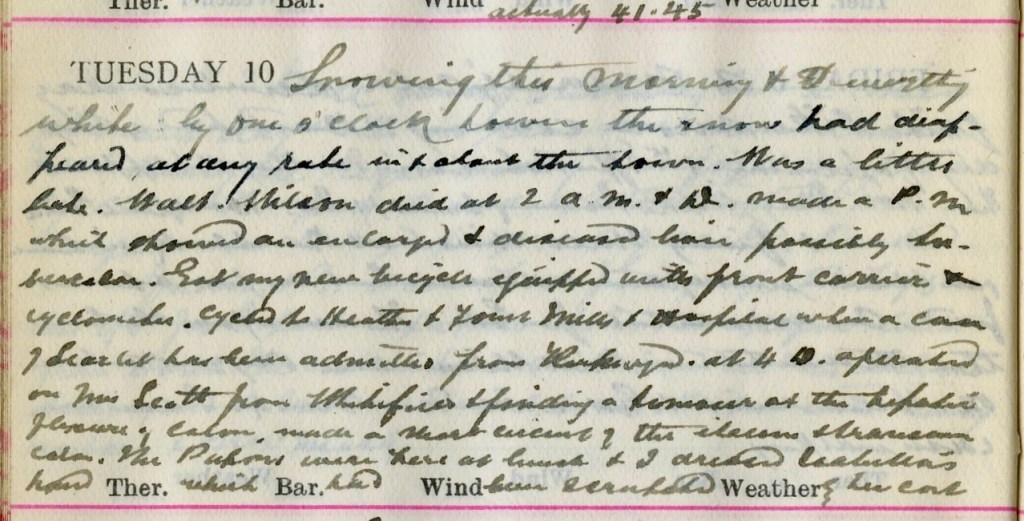 Ther. Bar. Wind Weather
actually 41.45
TUESDAY 10 Snowing this morning &
white by one o'clock however the snow had disap-
peared, at any rate in & about the town. Was a little
late. Walt. Wilson died at 2 a.m. & D. made a P.M
which showed an enlarged & diseased possibly tu-
bercular. Got my new bicycle equipped with front carrier &
cyclometer. Cycled to Heath & Town Mills & Hospital where a case
of Scarlet has been admitted from at 4 D. operated
on Mrs Scott from & finding a tumour at the hepatic
flexure of colon, made a short circuit of the ileum & transverse
colon. The were here at lunch & I dressed
hand Ther. which Bar. had Wind been scratched Weather by her cat